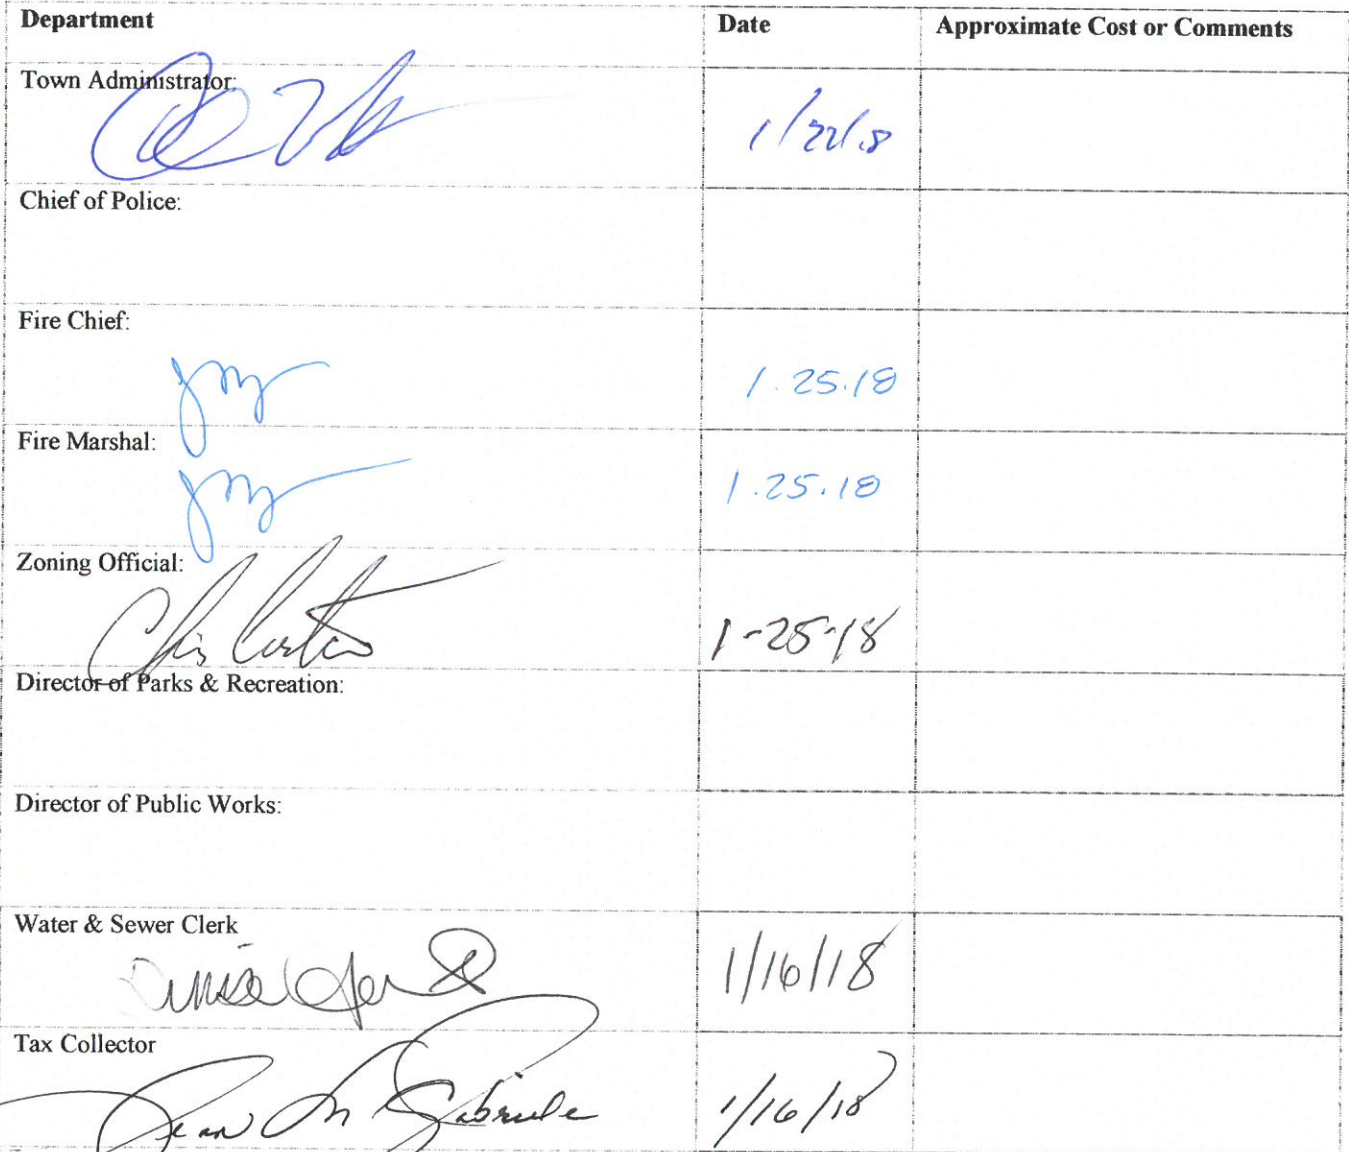 Department Date Approximate Cost or Comments
Town Administrator:
1/22/18
Chief of Police:
Fire Chief:
1.25.18
Fire Marshal:
1.25.18
Zoning Official:
1-25-18
Director of Parks & Recreation:
Director of Public Works:
Water & Sewer Clerk
1/16/18
Tax Collector
Jean M Gabriele 1/16/18